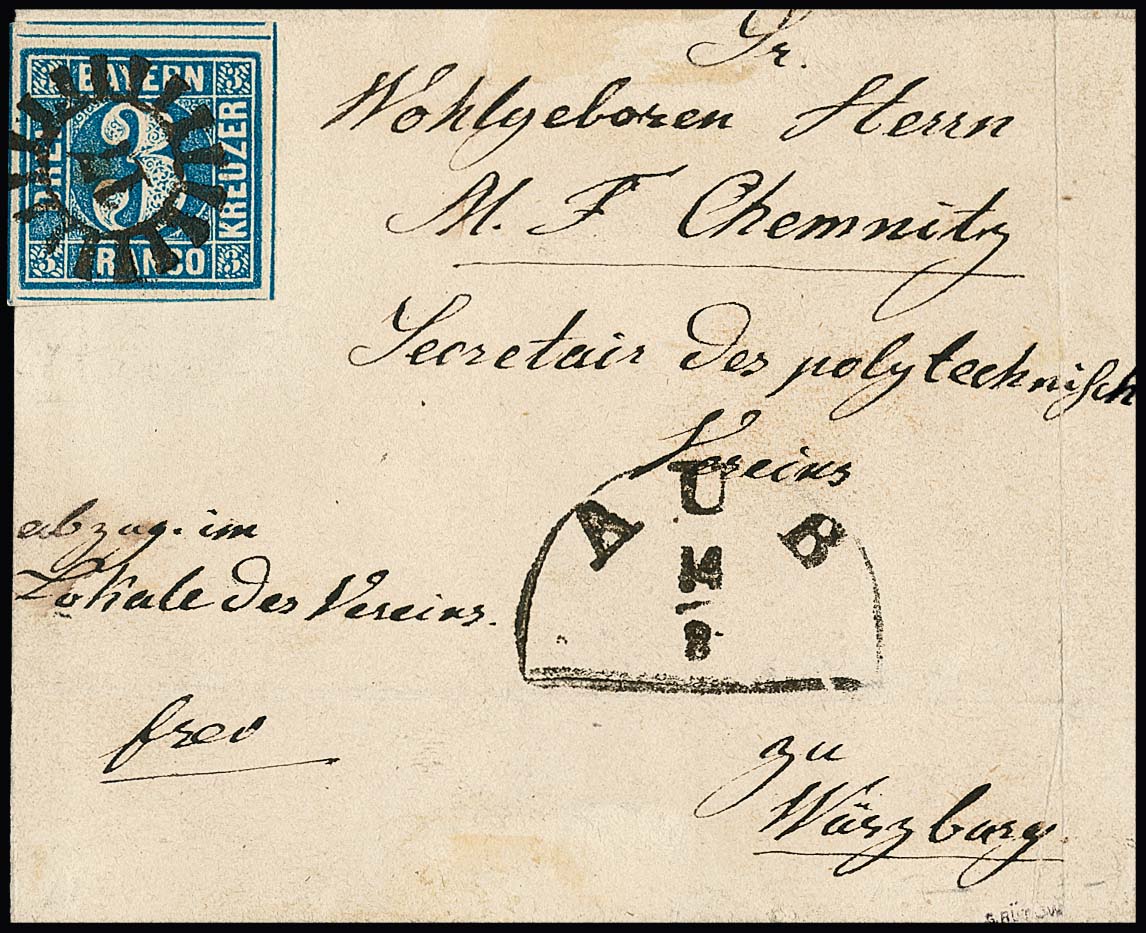 BAYERN
DREI
KREUZER
FRANCO
3 3 3 3
3
17
Sr.
Wohlgeboren Herrn
M. F Chemnitz
Secretair des polytechnisch
Vereins
abzug. im
Lokale des Vereins.
frei
AUB
14
8
zu
Würzburg